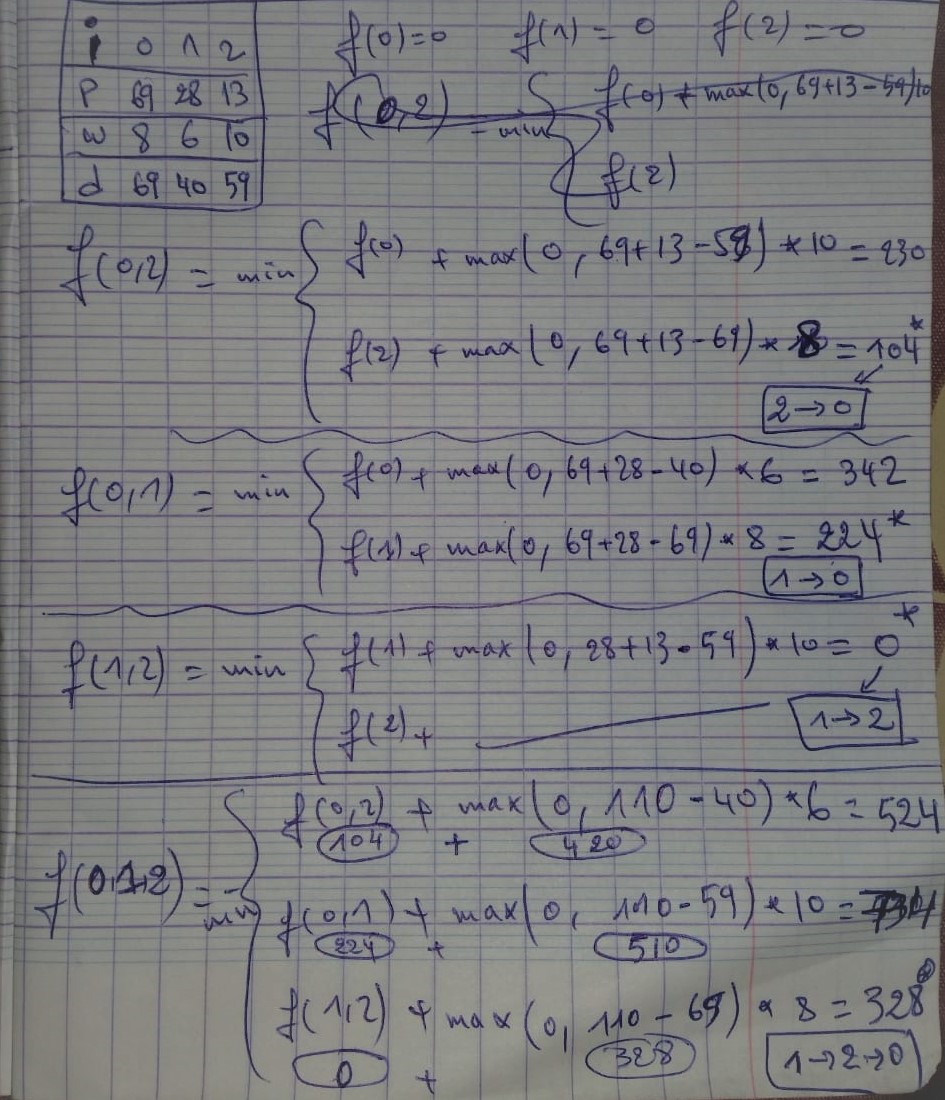 i 0 1 2
p 69 28 13
w 8 6 10
d 69 40 59
f(0)=0 f(1) = 0 f(2) = 0
f(0,2) = min { f(0) + max(0, 69+13-59)*10
f(2)
f(0,2) = min { f(0) + max(0, 69+13-59) * 10 = 230
f(2) + max(0, 69+13-69) * 8 = 104*
2→0
f(0,1) = min { f(0) + max(0, 69+28-40) * 6 = 342
f(1) + max(0, 69+28-69) * 8 = 224*
1→0
f(1,2) = min { f(1) + max(0, 28+13-59) * 10 = 0*
f(2) +
1→2
f(0,1,2) = min { f(0,2) + max(0, 110-40) * 6 = 524
104 + 420
f(0,1) + max(0, 110-59) * 10 = 734
224 + 510
f(1,2) + max(0, 110-69) * 8 = 328
0 + 328
1→2→0